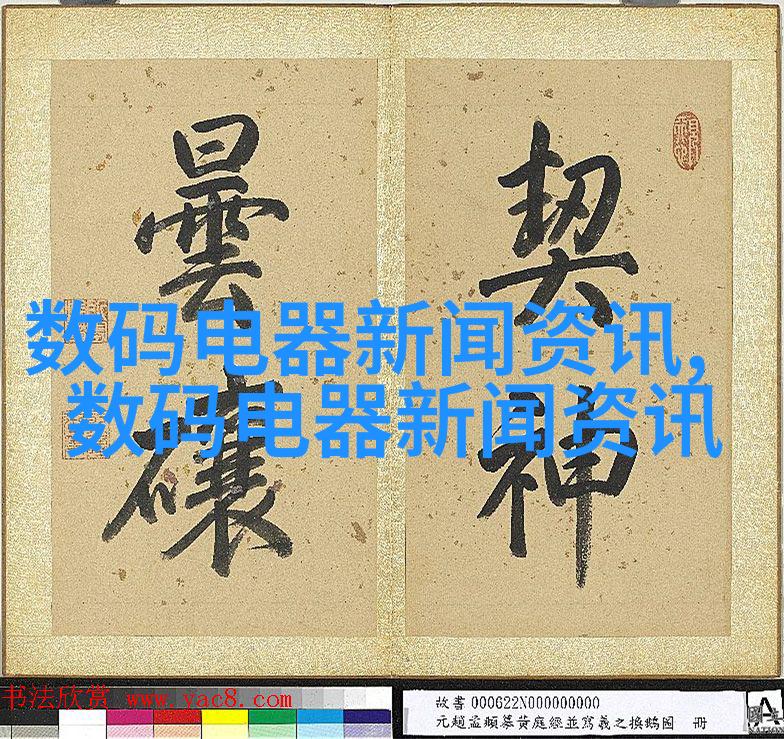 神契
曇礦
数码电器新闻资讯,
数码电器新闻资讯
书法欣赏 www.yac8.com
故書 000622N000000000
元趙孟頫摹黃庭經並寫羲之換鵝圖 冊